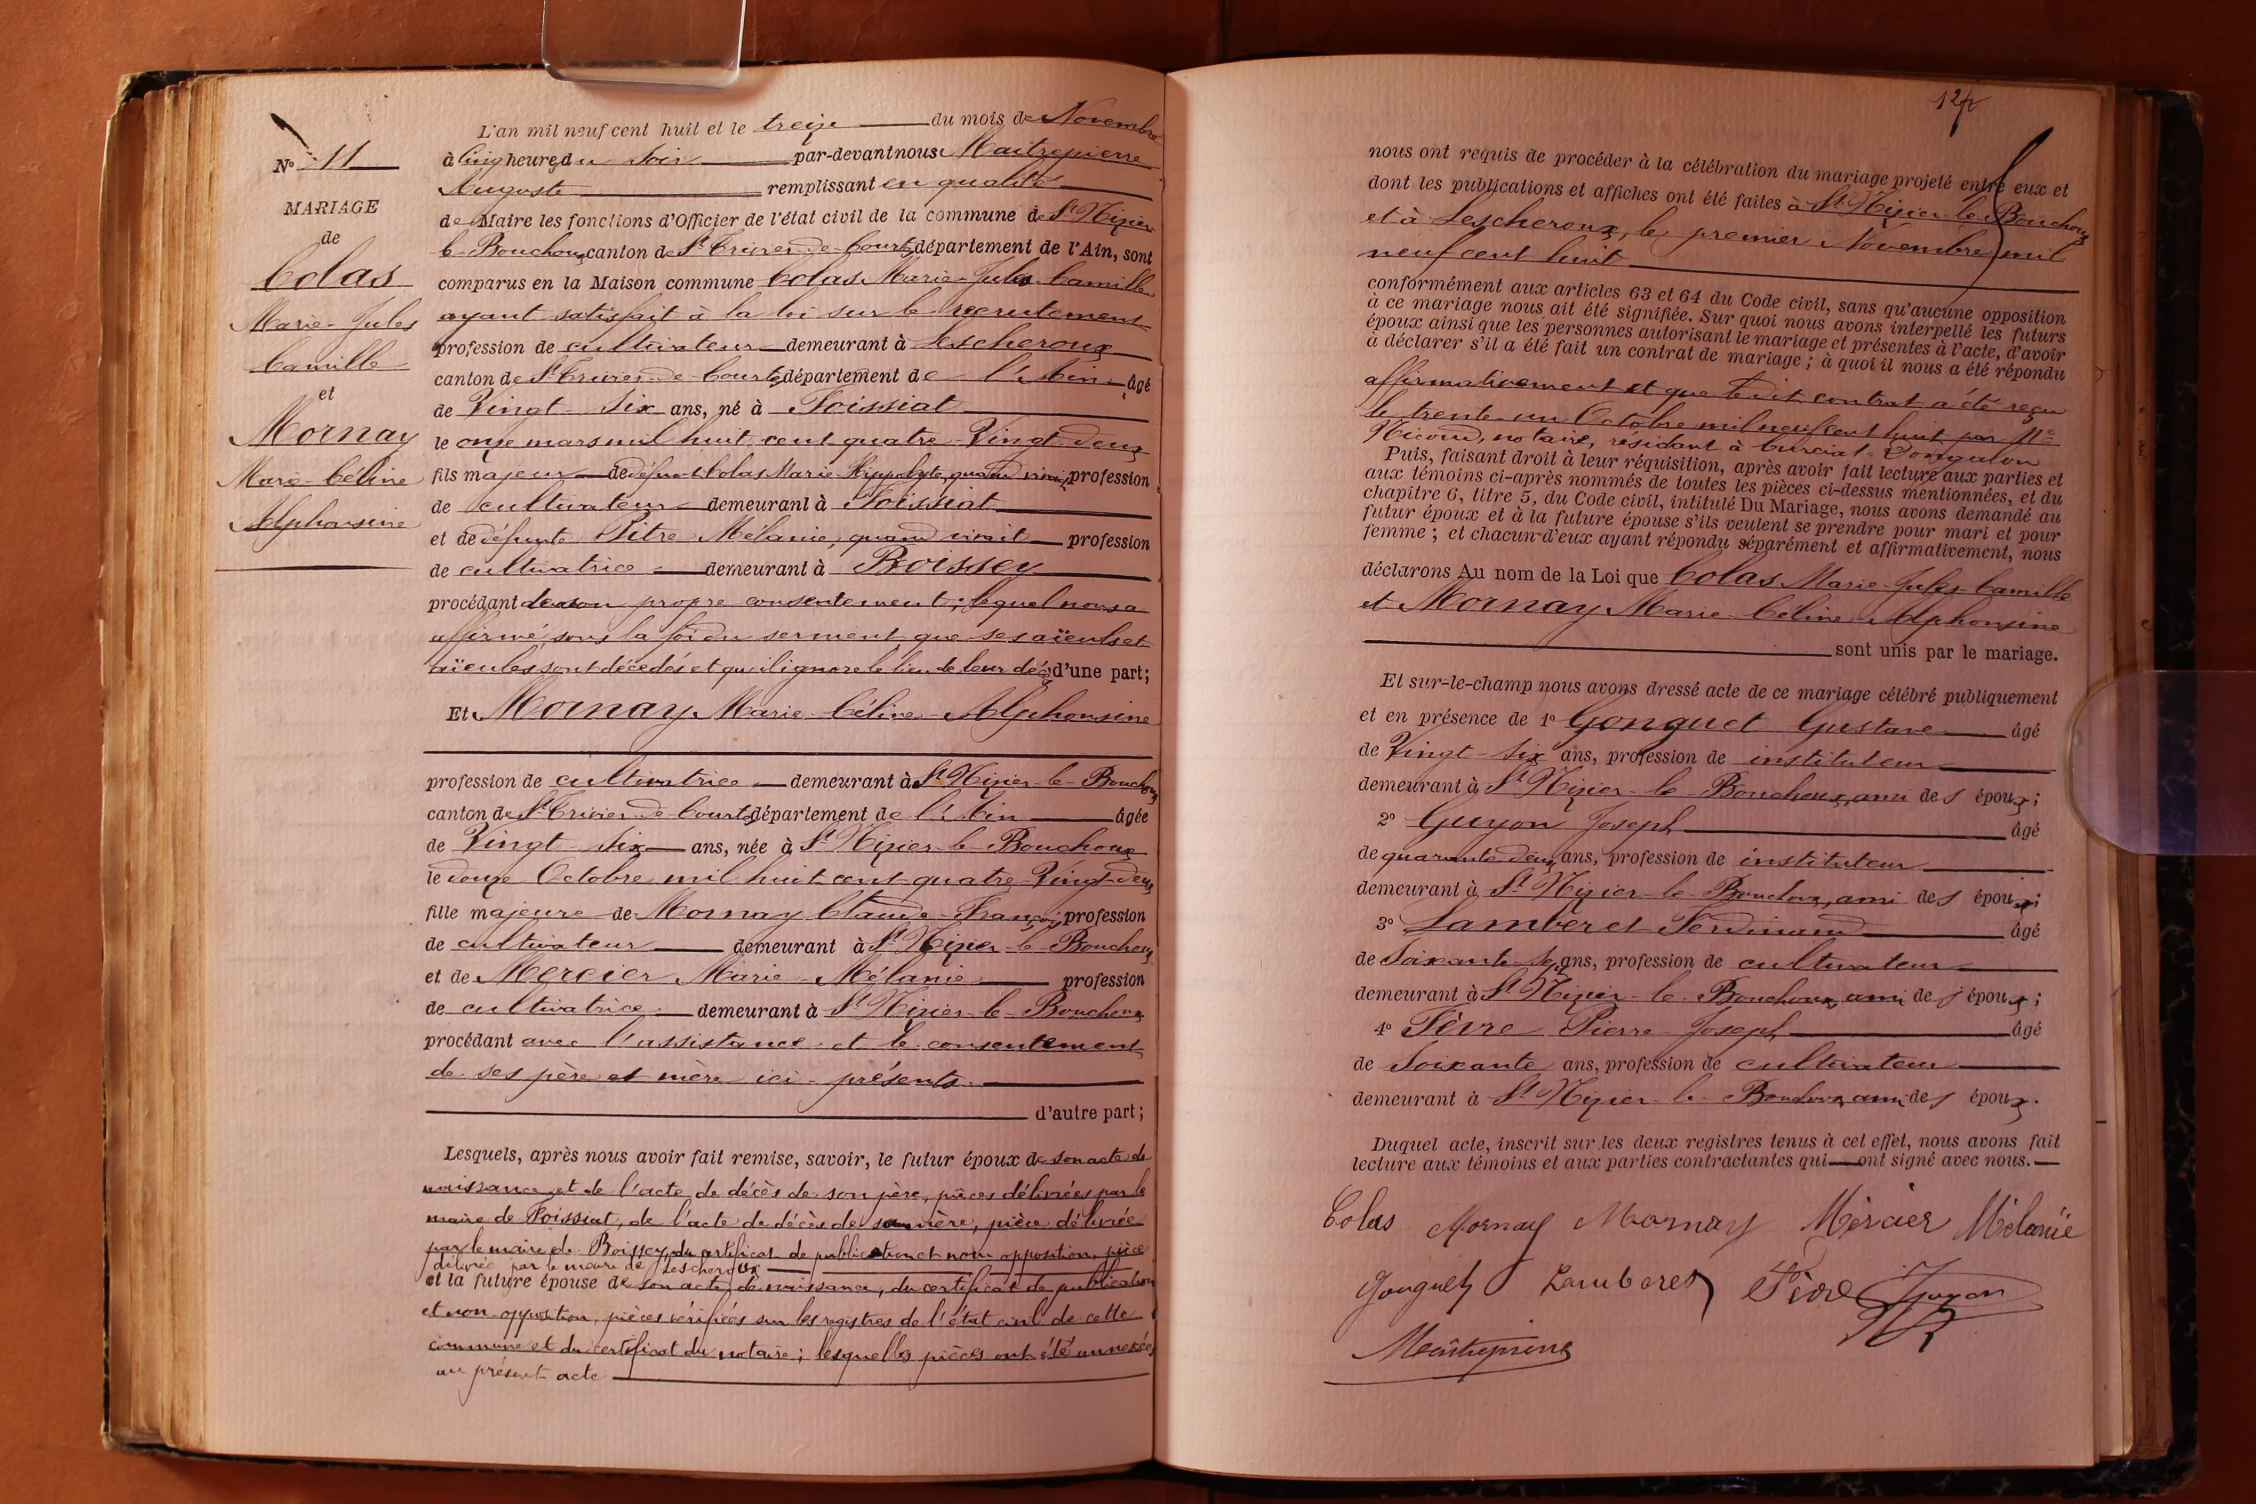 N° 11
MARIAGE
de
Colas
Marie-Jules
Camille
et
Mornay
Marie-Céline
Alphonsine
L'an mil neuf cent huit et le treize du mois de Novembre
à Cinq heures du Soir par-devant nous Maitrepierre
Auguste remplissant en qualité
de Maire les fonctions d'Officier de l'état civil de la commune de St Nizier
le-Bouchoux canton de St Trivier-de-Courtes département de l'Ain, sont
comparus en la Maison commune Colas Marie-Jules-Camille
ayant satisfait à la loi sur le recrutement
profession de cultivateur demeurant à Lescheroux
canton de St Trivier-de-Courtes département de l'Ain âgé
de Vingt-Six ans, né à Foissiat
le onze mars mil huit cent quatre-Vingt-deux
fils majeur de défunt Colas Marie-Hippolyte, quand vivait profession
de cultivateur demeurant à Foissiat
et de défunte Pitre Mélanie, quand vivait profession
de cultivatrice demeurant à Boissey
procédant de son propre consentement; lequel nous a
affirmé sous la foi du serment que ses aïeuls et
aïeules sont décédés et qu'il ignore le lieu de leur décès d'une part;
Et Mornay Marie-Céline-Alphonsine
profession de cultivatrice demeurant à St Nizier-le-Bouchoux
canton de St Trivier-de-Courtes département de l'Ain âgée
de Vingt-Six ans, née à St Nizier-le-Bouchoux
le douze Octobre mil huit cent quatre-Vingt-deux
fille majeure de Mornay Claude-François profession
de cultivateur demeurant à St Nizier-le-Bouchoux
et de Mercier Marie-Mélanie profession
de cultivatrice demeurant à St Nizier-le-Bouchoux
procédant avec l'assistance et le consentement
de ses père et mère ici-présents.
d'autre part;
Lesquels, après nous avoir fait remise, savoir, le futur époux de son acte de
naissance et de l'acte de décès de son père, pièces délivrées par le
maire de Foissiat, de l'acte de décès de sa mère, pièce délivrée
par le maire de Boissey, du certificat de publication et non opposition, pièce
délivrée par le maire de Lescheroux
et la future épouse de son acte de naissance, du certificat de publication
et non opposition, pièces vérifiées sur les registres de l'état civil de cette
commune et du certificat du notaire; lesquelles pièces ont été annexées
au présent acte
124
nous ont requis de procéder à la célébration du mariage projeté entre eux et
dont les publications et affiches ont été faites à St Nizier-le-Bouchoux
et à Lescheroux, le premier Novembre mil
neuf cent huit
conformément aux articles 63 et 64 du Code civil, sans qu'aucune opposition
à ce mariage nous ait été signifiée. Sur quoi nous avons interpellé les futurs
époux ainsi que les personnes autorisant le mariage et présentes à l'acte, d'avoir
à déclarer s'il a été fait un contrat de mariage; à quoi il nous a été répondu
affirmativement et que ledit contrat a été reçu
le trente-un Octobre mil neuf cent huit par Me
Nicoud, notaire, résidant à Curciat-Dongalon
Puis, faisant droit à leur réquisition, après avoir fait lecture aux parties et
aux témoins ci-après nommés de toutes les pièces ci-dessus mentionnées, et du
chapitre 6, titre 5, du Code civil, intitulé Du Mariage, nous avons demandé au
futur époux et à la future épouse s'ils veulent se prendre pour mari et pour
femme; et chacun d'eux ayant répondu séparément et affirmativement, nous
déclarons Au nom de la Loi que Colas Marie-Jules-Camille
et Mornay Marie-Céline-Alphonsine
sont unis par le mariage.
Et sur-le-champ nous avons dressé acte de ce mariage célébré publiquement
et en présence de 1° Gonguet Gustave âgé
de Vingt-Six ans, profession de instituteur
demeurant à St Nizier-le-Bouchoux, ami des époux;
2° Guyon Joseph âgé
de quarante deux ans, profession de instituteur
demeurant à St Nizier-le-Bouchoux, ami des époux;
3° Lamberet Ferdinand âgé
de Soixante-Sept ans, profession de cultivateur
demeurant à St Nizier-le-Bouchoux, ami des époux;
4° Fèvre Pierre-Joseph âgé
de Soixante ans, profession de cultivateur
demeurant à St Nizier-le-Bouchoux, ami des époux.
Duquel acte, inscrit sur les deux registres tenus à cet effet, nous avons fait
lecture aux témoins et aux parties contractantes qui ont signé avec nous.
Colas Mornay Mornay Mercier Mélanie
Gonguet Lamberet Fèvre Guyon
Maîtrepierre